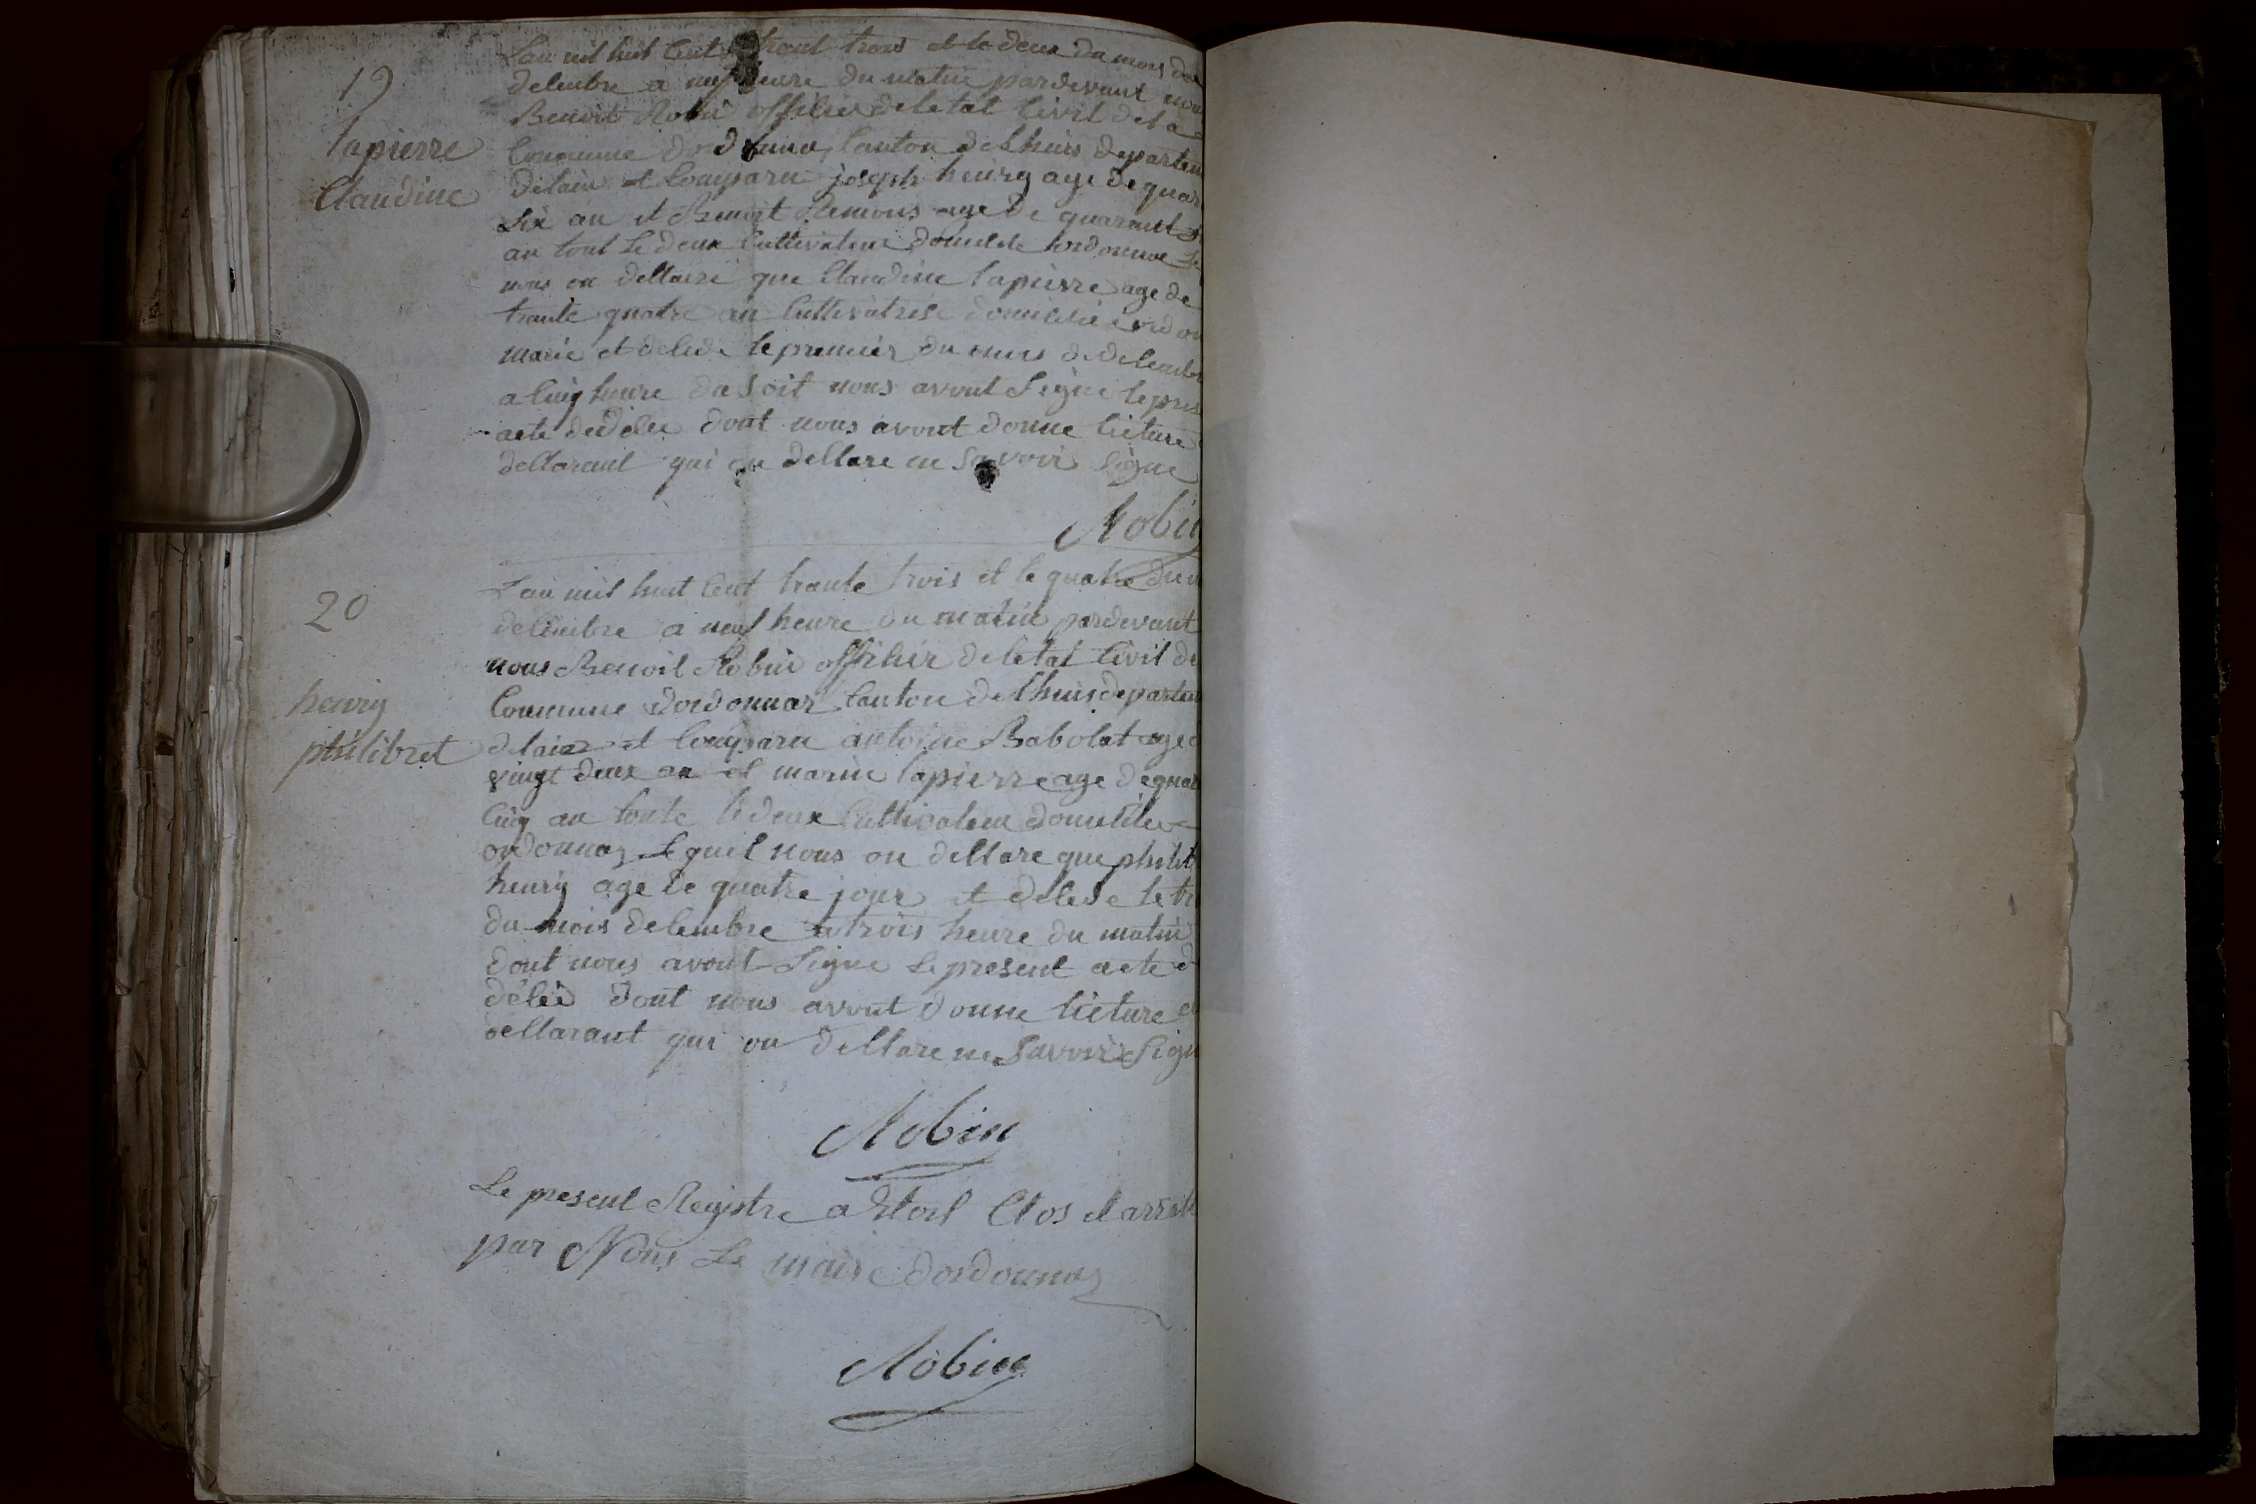 19
lapierre
Claudine
L'an mil huit Cent trant trois et le deux du mois de
delembre a neuf heure du matin pardevant nous
Benoit Robin offilier deletat Civil de la
Commune dordonna, Canton de Lhuis departem
delain et Comparu joseph henry age de quar
six an et Benoit Remons age de quarant
an tout le deux Cultivateur domilile ordonnae Le
nous on dellaire que Claudine lapierre age de
trante quatre an Cultivatrise domililie ordon
marie et delede le premier du mois de delembr
a Cinq heure du soit nous avont Signe le pres
acte dedelee dont nous avont donne licture
dellarant qui on dellare ne savoir Signe
Robin
20
henry
philibret
L'an mil huit Cent trante trois et le quatre du m
delembre a neuf heure du matin pardevant
nous Benoit Robin offilier deletat Civil de
Commune dordonnaz Canton de lhuis departem
delain et Comparu antoine Babolat age
vingt deux an et marin lapierre age de quar
Cinq an toute le deux Cultivateur domilile
ordonnaz Lequel nous on dellare que philib
henry age de quatre jour et delede le tr
du mois delembre a trois heure du matin
dont nous avont Signe le present acte d
délés dont nous avont donne licture
dellarant qui on dellare ne savoir Sign
Robin
Le present Registre a Etoes Clos et arrete
par Nous Le maire dordonnaz
Robin